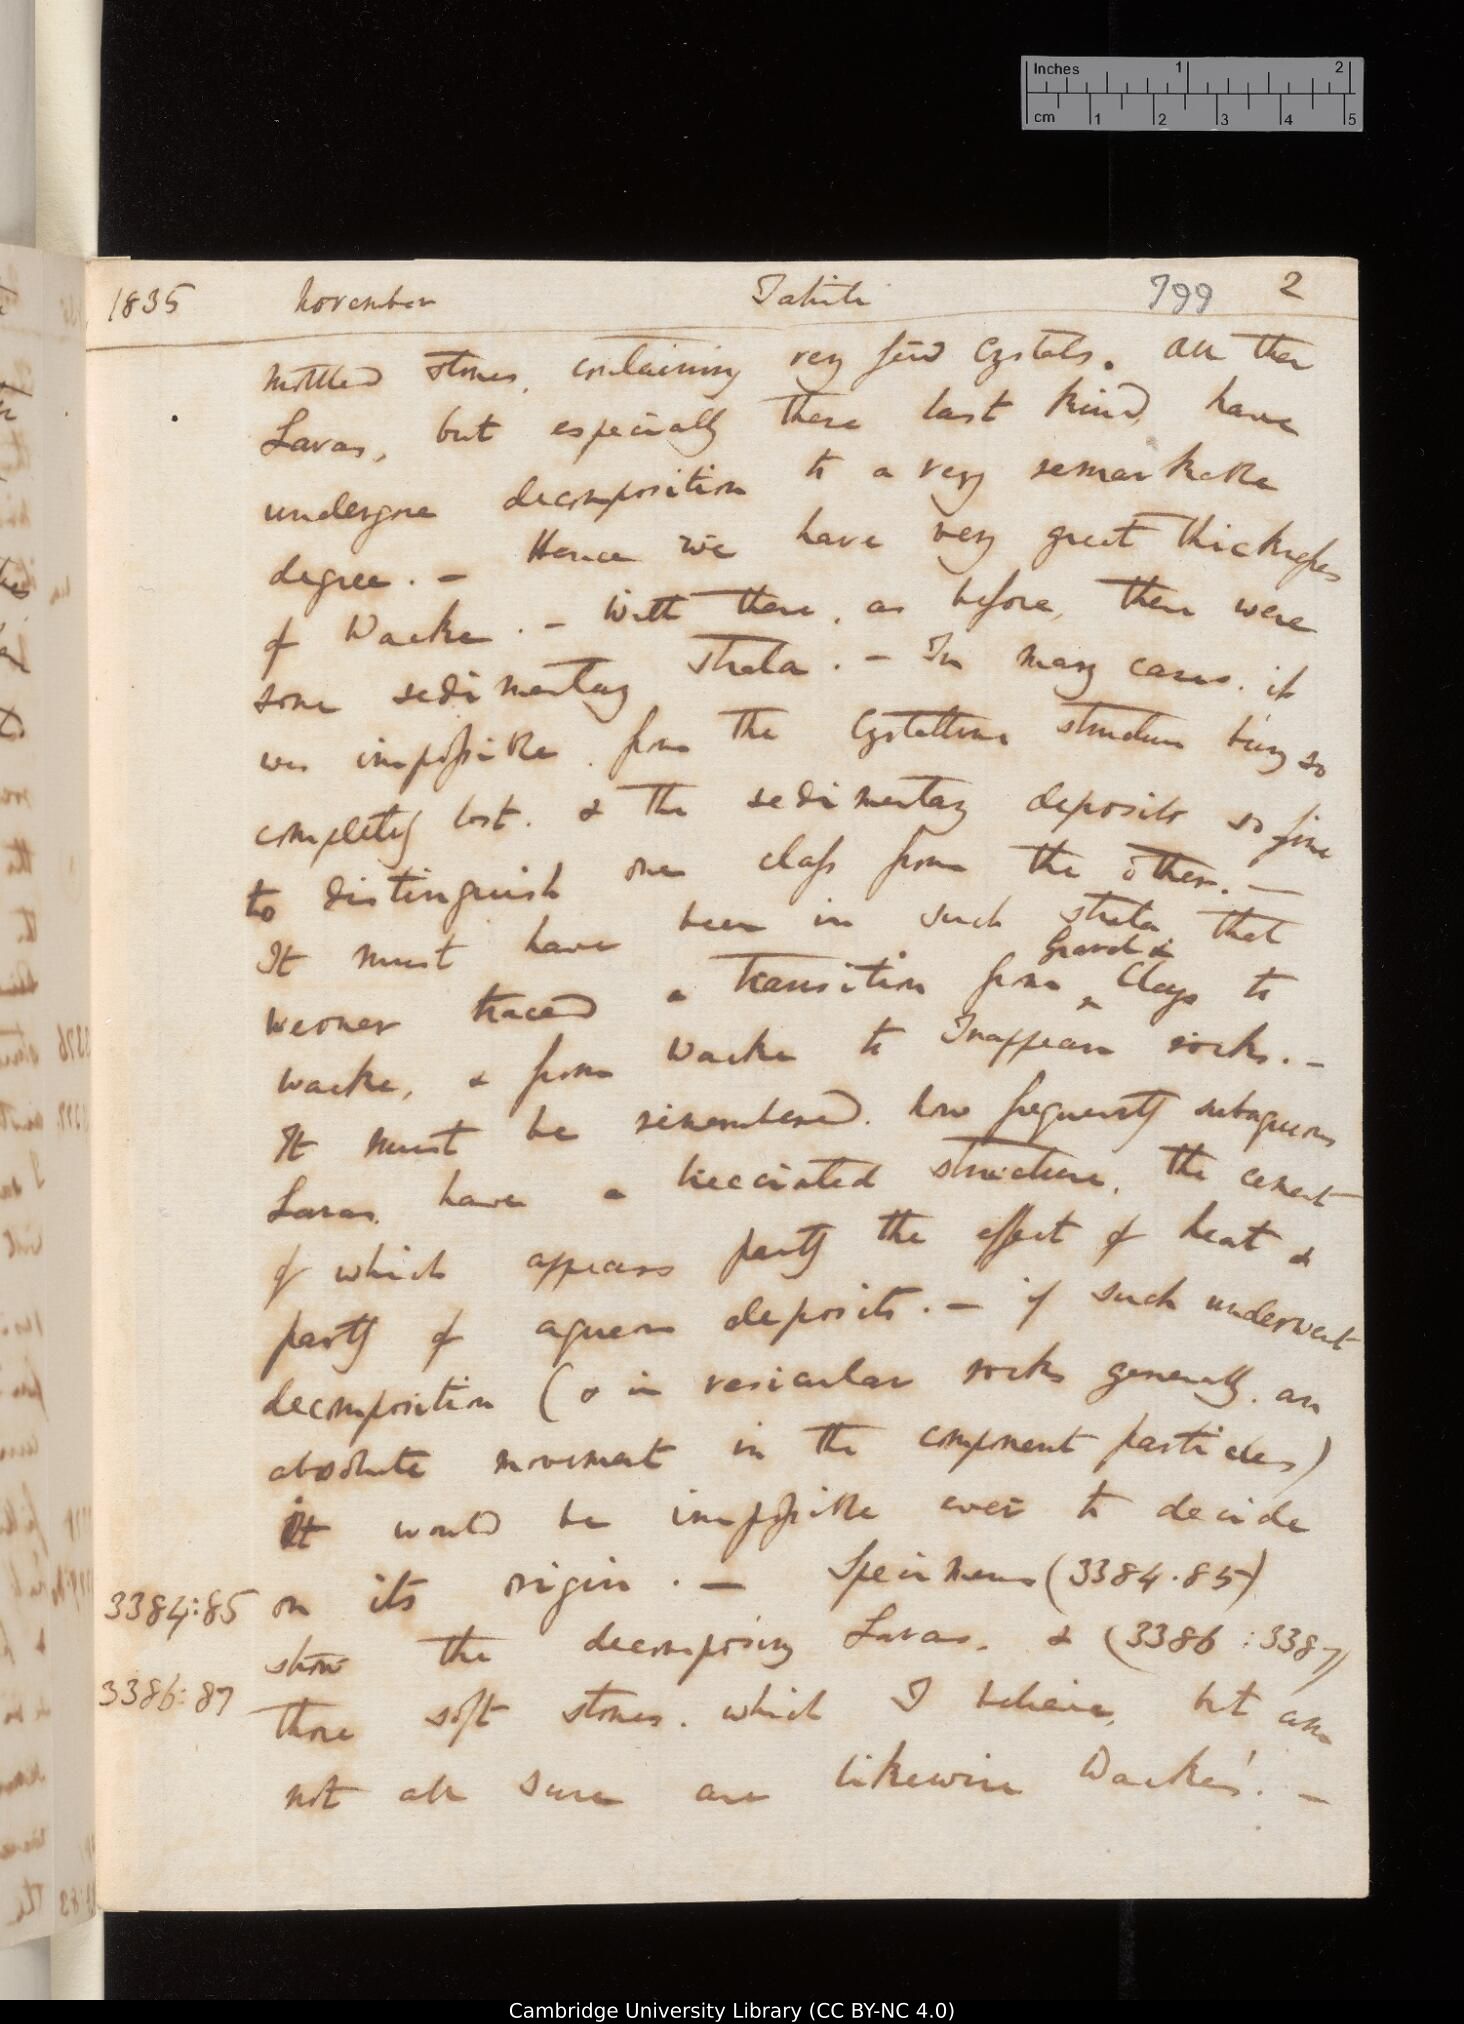 Inches 1 2
cm 1 2 3 4 5
1835 November Tahiti 799 2
mottled stones, containing very few Crystals. All these
Lavas, but especially these last kind, have
undergone decomposition to a very remarkable
degree. — Hence we have very great thicknesses
of Wacke. — With these, as before, there were
some sedimentary strata. — In many cases, it
was impossible, from the Crystalline structure being so
completely lost, & the sedimentary deposits so fine
to distinguish one class from the other. —
It must have been in such strata, that
Gravel &
Werner traced a transition from ^ Clays to
Wacke, & from Wacke to Trappean rocks. —
It must be remembered, how frequently subaqueous
Lavas, have a brecciated structure, the cement
of which appears partly the effect of heat &
partly of aqueous deposits. — if such underwent
decomposition (& in vesicular rocks generally, an
absolute movement in the component particles)
it would be impossible ever to decide
3384:85 on its origin. — Specimens (3384.85)
show the decomposing Lavas, & (3386:3387)
3386:87 those soft stones, which I believe, but am
not all sure are likewise Wacke's. —
Cambridge University Library (CC BY-NC 4.0)